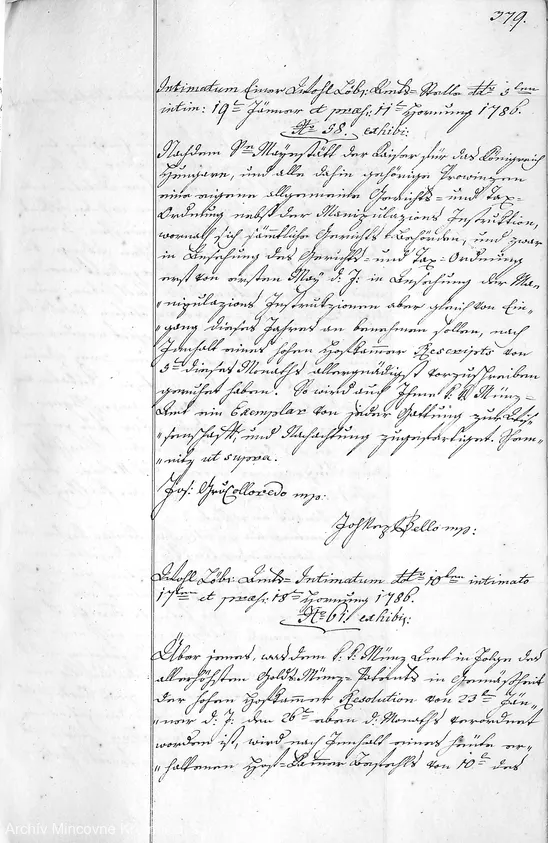 379.
Intimatum Einer Wohl Löbr: Amts-Stelle ddto 5ten
intim: 19t Jänner et praes: 11t Hornung 1786.
No 58. exhibi:
Nachdem Se Mayestätt der Kaiser für das Königreich
Hungarn, und alle dahin gehörige Provinzen
eine eigene allgemeine Gerichts- und Tax-
Ordnung nebst der Manipulazions Instruktion,
wornach sich sämmtliche Gerichts Behörden, und zwar
in Ansehung des Gerichts- und Tax-Ordnung
erst von ersten May d: J: in Ansehung der Ma-
"nipulazions Instrukzionen aber gleich von Ein-
"gang dieses Jahres an benehmen sollen, nach
Innhalt eines hohen Hofkammer Rescripts von
5t dieses Monaths allergnädigst vorzuschreiben
geruhet haben. So wird auch Ihme k: k: Münz-
Amt ein Exemplar von jeder Gattung zur Wis-
"senschaft, und Nachachtung zugefertiget. Chem-
"nitz ut supra.
Jos: Gr: Colloredo mp:
Joh Bello mp:
Wohl Löbr: Amts-Intimatum ddto 10ten intimato
17ten et praes: 18t Hornung 1786.
No 61. exhibi:
Über jenes, was dem k: k: Münz Amt in Folge des
allerhöchsten Gold-Münz-Patents in Gemäßheit
der hohen Hofkammer Resolution von 23t Jän-
"ner d: J: den 26t eben d: Monaths verordnet
worden ist, wird nach Innhalt eines heute er-
"haltenen Hof-Kammer Befehls von 10t des
Archív Mincovne